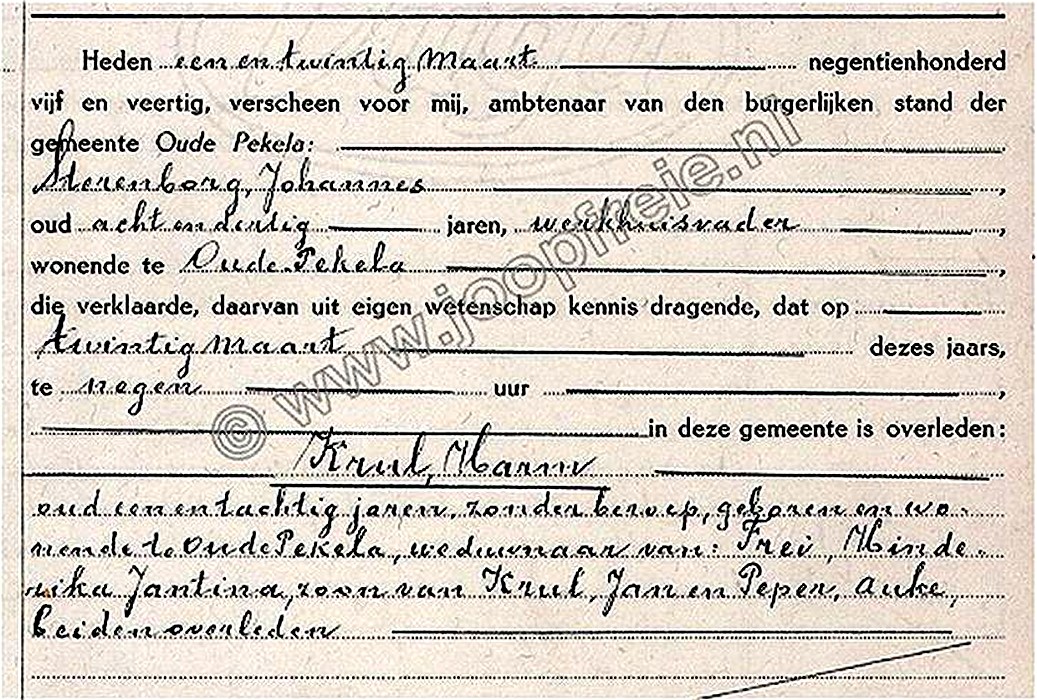 Heden een en twintig Maart negentienhonderd
vijf en veertig, verscheen voor mij, ambtenaar van den burgerlijken stand der
gemeente Oude Pekela:
Sterenborg, Johannes ,
oud acht en dertig jaren, werkhuisvader ,
wonende te Oude Pekela ,
die verklaarde, daarvan uit eigen wetenschap kennis dragende, dat op
twintig Maart dezes jaars,
te negen uur ,
in deze gemeente is overleden:
Krul, Harm
oud een en tachtig jaren, zonder beroep, geboren en wo-
nende te Oude Pekela, weduwnaar van: Frei, Hinde-
rika Jantina, zoon van Krul, Jan en Peper, Auke,
beiden overleden
© www.joopfreie.nl